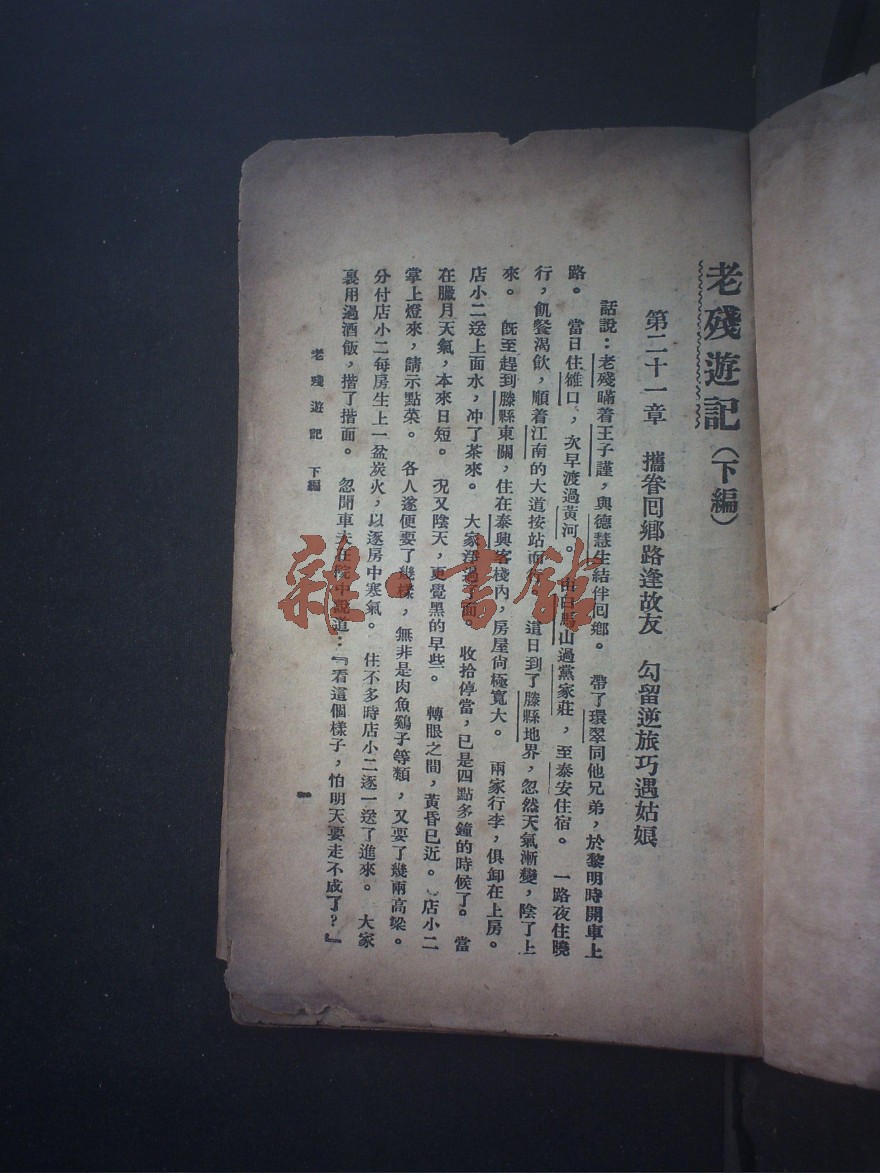 老殘遊記（下編）
第二十一章　攜眷囘鄉路逢故友　勾留逆旅巧遇姑娘
話說：老殘瞞着王子謹，與德慧生結伴囘鄉。　帶了環翠同他兄弟，於黎明時開車上
路。　當日住雒口，次早渡過黃河。　由白馬山過黨家莊，至泰安住宿。　一路夜住曉
行，飢餐渴飲，順着江南的大道按站而行。　這日到了滕縣地界，忽然天氣漸變，陰了上
來。　旣至趕到滕縣東關，住在泰興客棧內，房屋尙極寬大。　兩家行李，俱卸在上房。
店小二送上面水，冲了茶來。　大家淨過了面。　收拾停當，已是四點多鐘的時候了。　當
在臘月天氣，本來日短。　況又陰天，更覺黑的早些。　轉眼之間，黃昏已近。　店小二
掌上燈來，請示點菜。　各人遂便要了幾樣，無非是肉魚鷄子等類，又要了幾兩高粱。
分付店小二每房生上一盆炭火，以逐房中寒氣。　住不多時店小二逐一送了進來。　大家
裏用過酒飯，揩了揩面。　忽聞車夫在院中說道：『看這個樣子，怕明天要走不成了？』
老殘遊記　下編
一
雜·書館